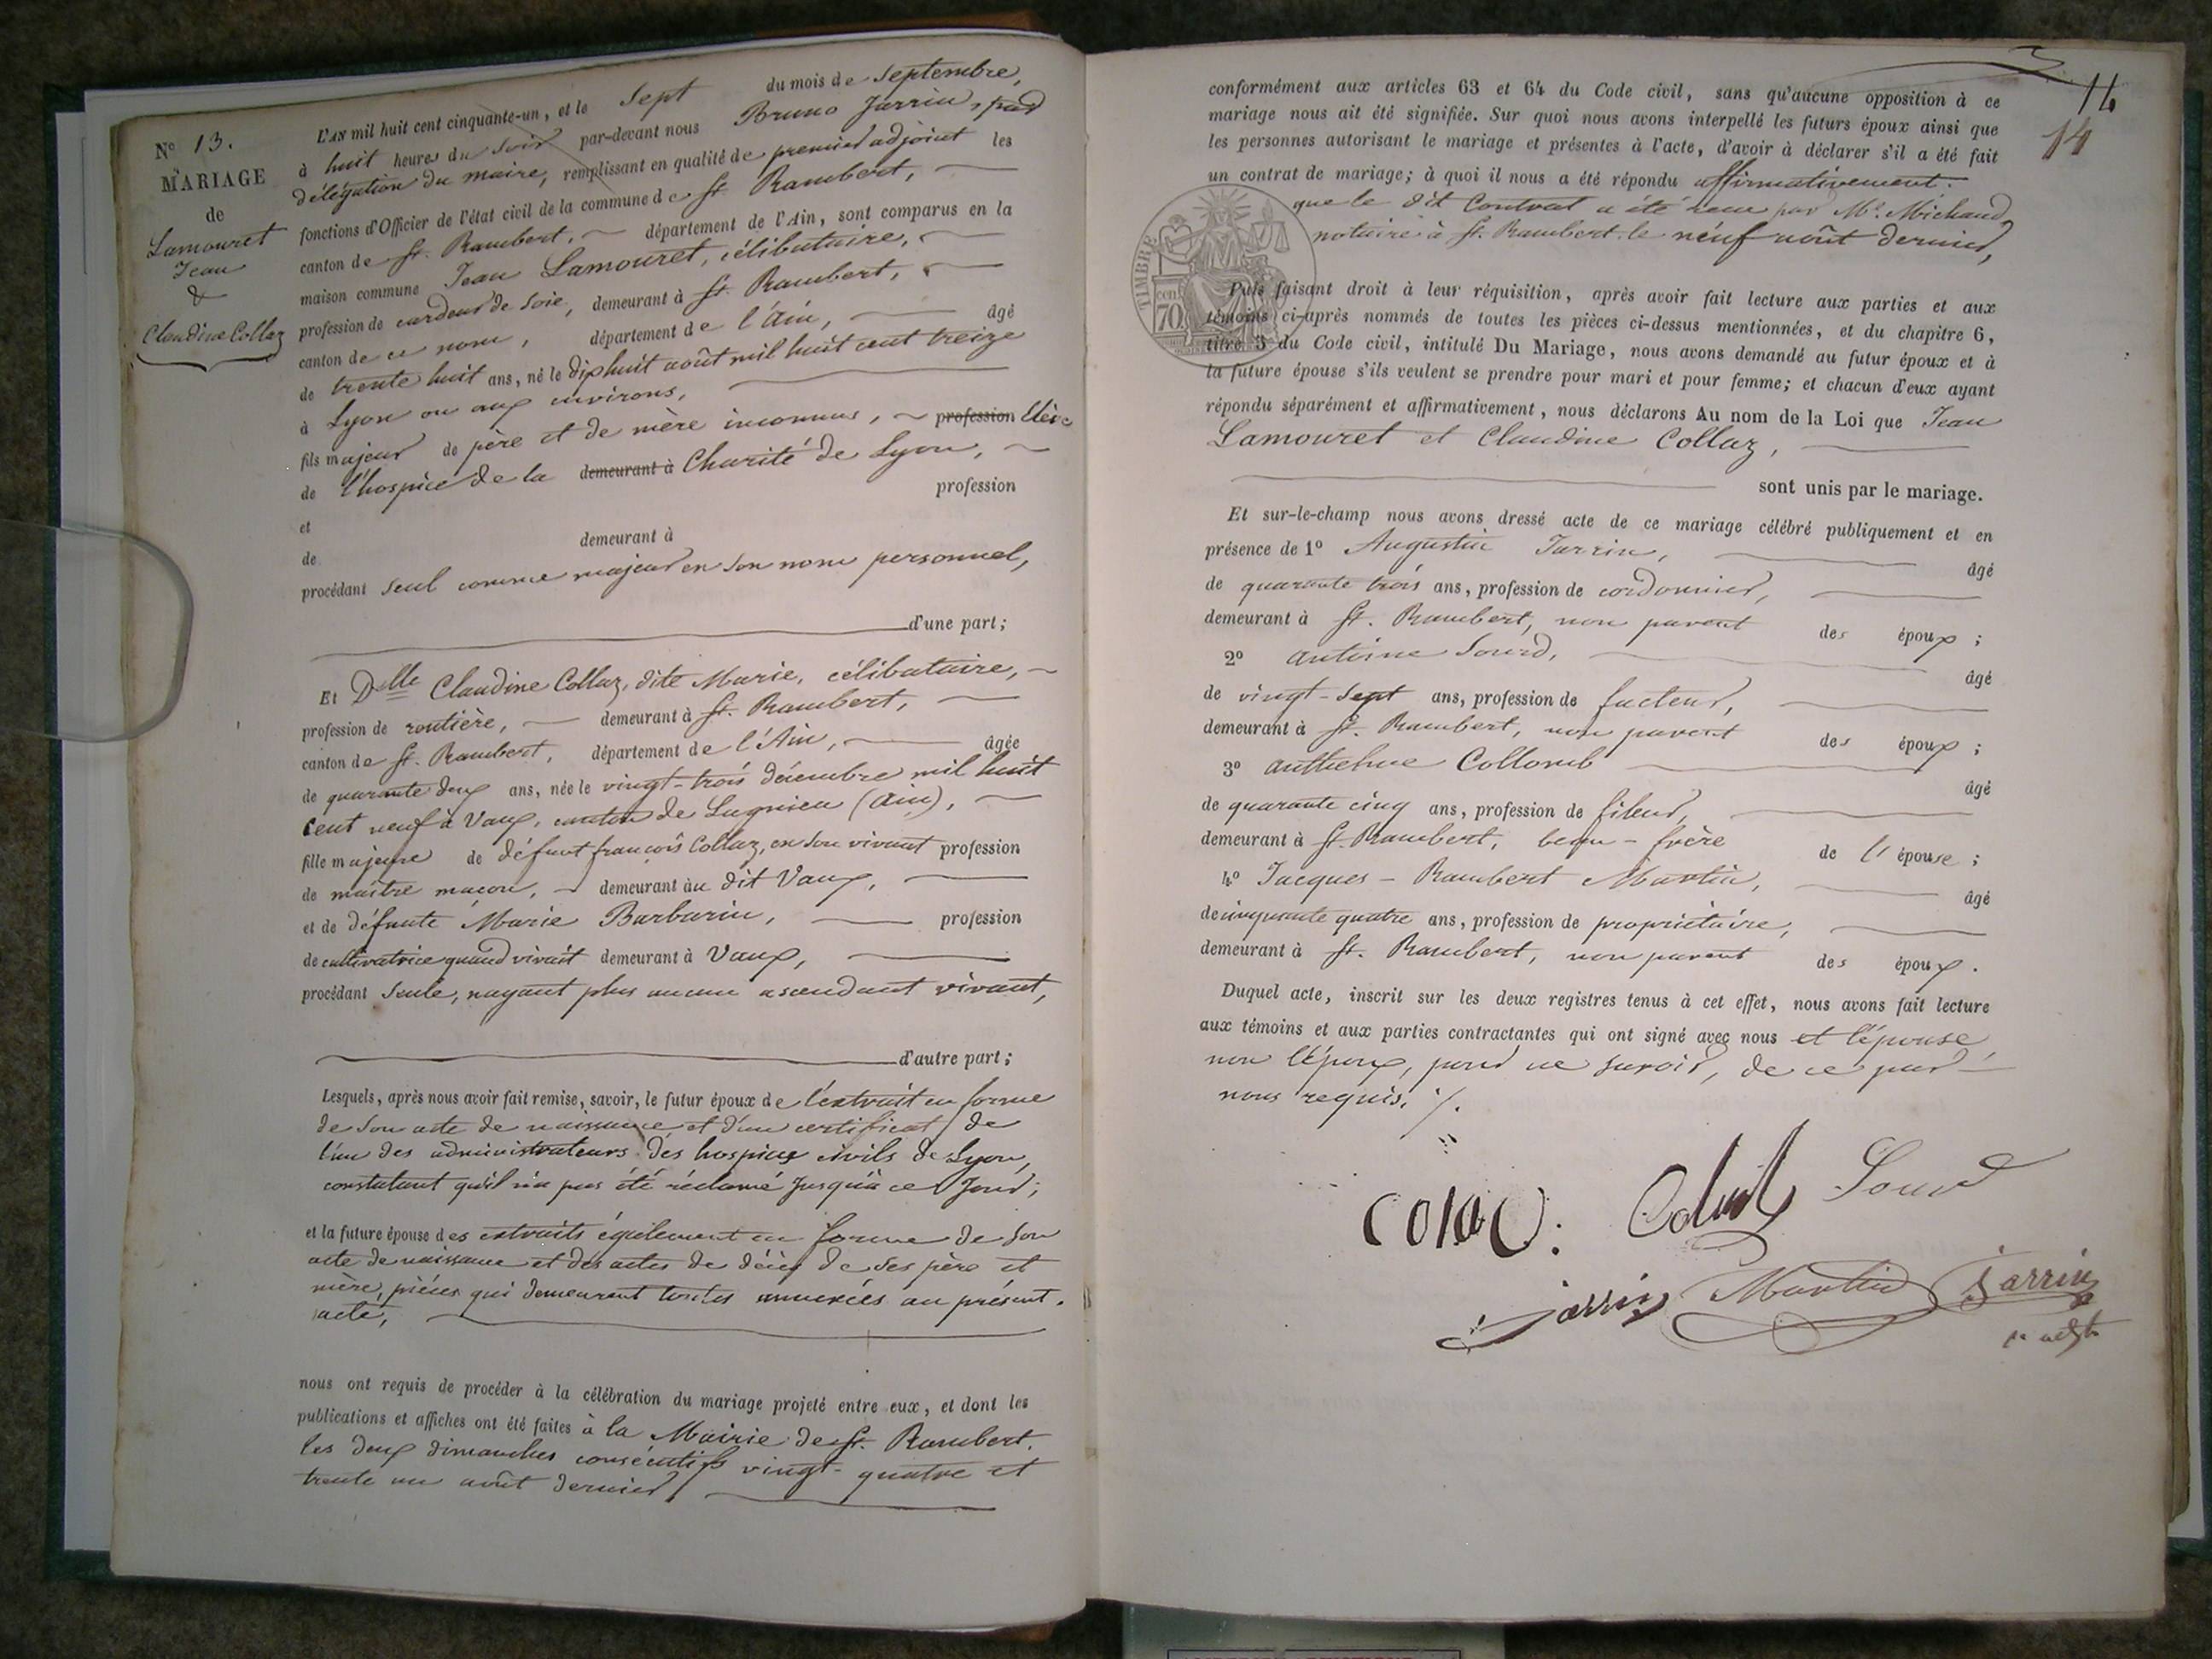 N° 13.
MARIAGE
de
Lamouret
Jean
&
Claudine Collaz
L'AN mil huit cent cinquante-un, et le sept du mois de septembre,
à huit heures du soir par-devant nous Bruno Jarrin, par
délégation du maire, remplissant en qualité de premier adjoint les
fonctions d'Officier de l'état civil de la commune de St. Rambert,
canton de St. Rambert, département de l'Ain, sont comparus en la
maison commune Jean Lamouret, célibataire,
profession de cardeur de soie, demeurant à St. Rambert,
canton de ce nom, département de l'Ain, âgé
de trente huit ans, né le dix huit août mil huit cent treize
à Lyon ou aux environs,
fils majeur de père et de mère inconnus, profession Elève
de l'hospice de la demeurant à Charité de Lyon,
et profession
de demeurant à
procédant seul comme majeur en son nom personnel,
d'une part;
Et Delle Claudine Collaz, dite Marie, célibataire,
profession de routière, demeurant à St. Rambert,
canton de St. Rambert, département de l'Ain, âgée
de quarante deux ans, née le vingt-trois décembre mil huit
cent neuf à Vaux, canton de Lagnieu (Ain),
fille majeure de défunt françois Collaz, en son vivant profession
de maître maçon, demeurant au dit Vaux,
et de défunte Marie Barbarin, profession
de cultivatrice quand vivait demeurant à Vaux,
procédant seule, nayant plus aucun ascendant vivant,
d'autre part;
Lesquels, après nous avoir fait remise, savoir, le futur époux de l'extrait en forme
de son acte de naissance et d'un certificat de
l'un des administrateurs des hospices civils de Lyon,
constatant qu'il n'a pas été réclamé jusqu'à ce jour;
et la future épouse des extraits également en forme de son
acte de naissance et des actes de décès de ses père et
mère, pièces qui demeurent toutes annexées au présent
acte,
nous ont requis de procéder à la célébration du mariage projeté entre eux, et dont les
publications et affiches ont été faites à la Mairie de St. Rambert,
les deux dimanches consécutifs vingt-quatre et
trente un août dernier
14
conformément aux articles 63 et 64 du Code civil, sans qu'aucune opposition à ce
mariage nous ait été signifiée. Sur quoi nous avons interpellé les futurs époux ainsi que
les personnes autorisant le mariage et présentes à l'acte, d'avoir à déclarer s'il a été fait
un contrat de mariage; à quoi il nous a été répondu affirmativement.
que le dit Contrat a été recu par Me. Michaud,
notaire à St. Rambert le neuf août dernier,
TIMBRE
70 cent
Puis faisant droit à leur réquisition, après avoir fait lecture aux parties et aux
témoins ci-après nommés de toutes les pièces ci-dessus mentionnées, et du chapitre 6,
titre 5 du Code civil, intitulé Du Mariage, nous avons demandé au futur époux et à
la future épouse s'ils veulent se prendre pour mari et pour femme; et chacun d'eux ayant
répondu séparément et affirmativement, nous déclarons Au nom de la Loi que Jean
Lamouret et Claudine Collaz,
sont unis par le mariage.
Et sur-le-champ nous avons dressé acte de ce mariage célébré publiquement et en
présence de 1° Augustin Jarrin, âgé
de quarante trois ans, profession de cordonnier,
demeurant à St. Rambert, non parent des époux;
2° Antoine Sourd, âgé
de vingt-sept ans, profession de facteur,
demeurant à St. Rambert, non parent des époux;
3° Anthelme Collomb âgé
de quarante cinq ans, profession de fileur,
demeurant à St. Rambert, beau-frère de l'épouse;
4° Jacques-Rambert Martin, âgé
de cinquante quatre ans, profession de propriétaire,
demeurant à St. Rambert, non parent des époux.
Duquel acte, inscrit sur les deux registres tenus à cet effet, nous avons fait lecture
aux témoins et aux parties contractantes qui ont signé avec nous et l'épouse,
non l'époux, pour ne savoir, de ce par
nous requis.
Sourd
Jarrin Martin Jarrin